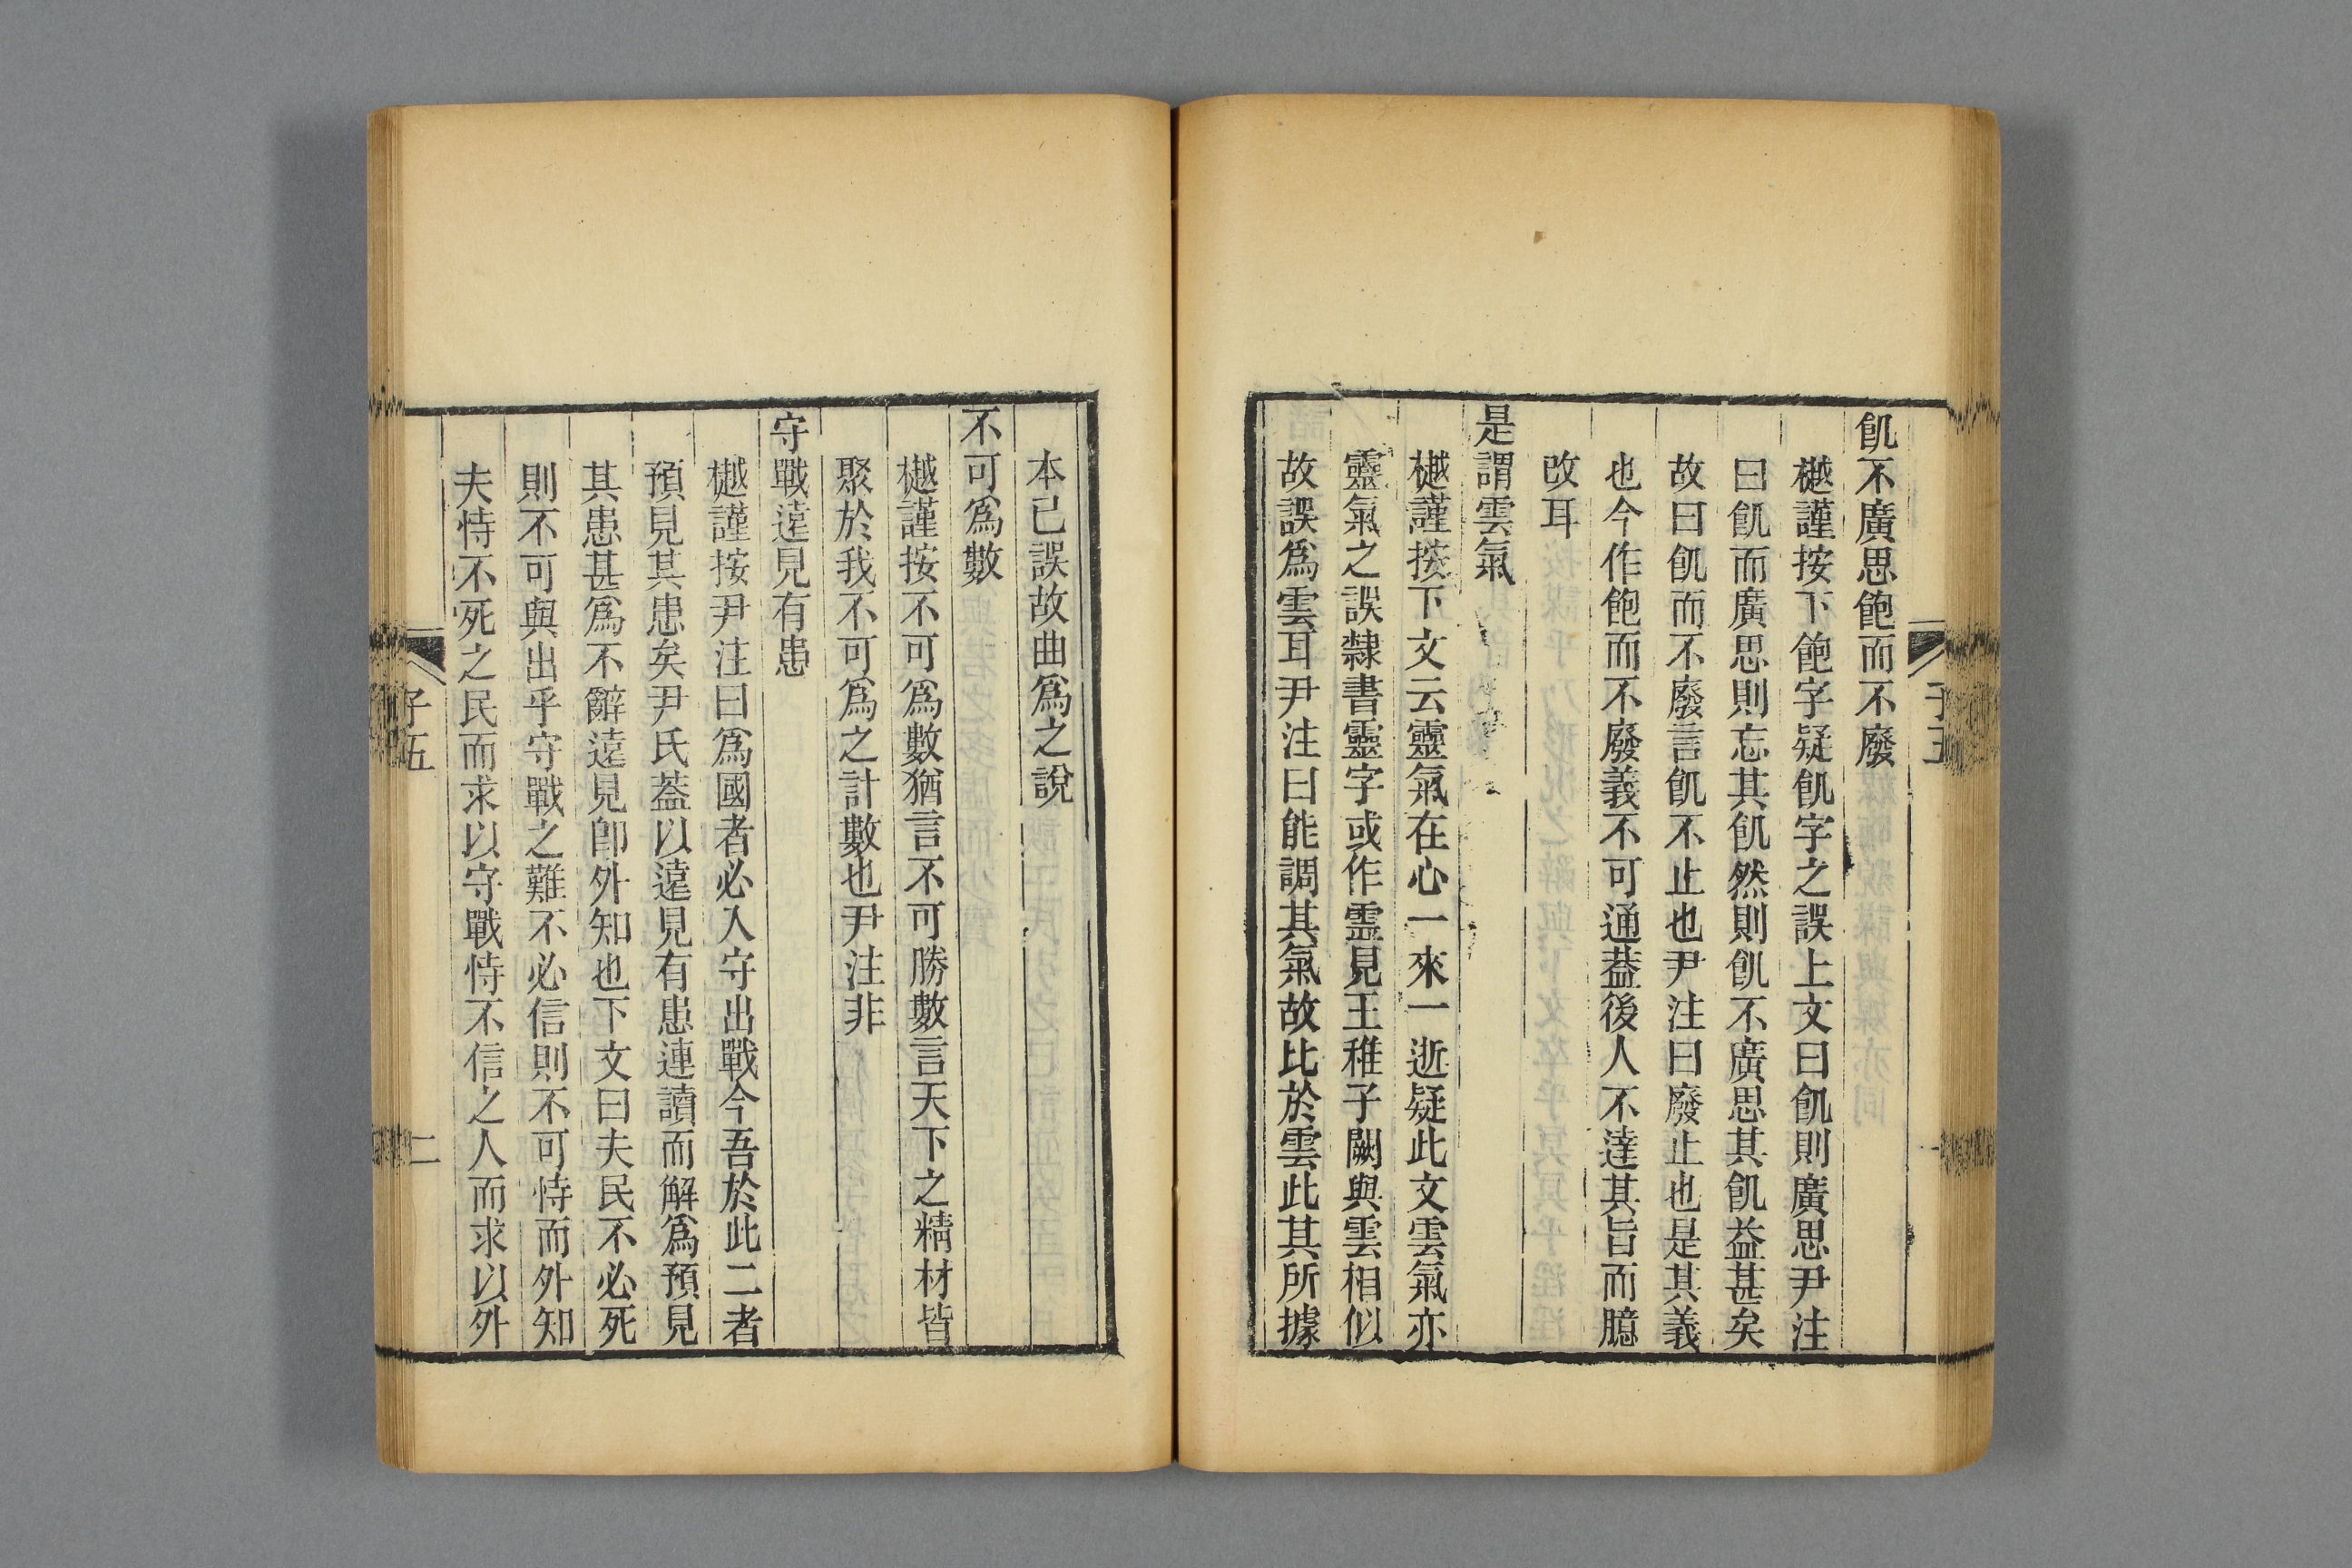 飢不廣思飽而不廢
樾謹按下飽字疑飢字之誤上文曰飢則廣思尹注
曰飢而廣思則忘其飢然則飢不廣思其飢益甚矣
故曰飢而不廢言飢不止也尹注曰廢止也是其義
也今作飽而不廢義不可通葢後人不達其旨而臆
改耳
是謂雲氣
樾謹按下文云靈氣在心一來一逝疑此文雲氣亦
靈氣之誤隸書靈字或作霊見王稚子闕與雲相似
故誤爲雲耳尹注曰能調其氣故比於雲此其所據
本已誤故曲爲之說
不可爲數
樾謹按不可爲數猶言不可勝數言天下之精材皆
聚於我不可爲之計數也尹注非
守戰遠見有患
樾謹按尹注曰爲國者必入守出戰今吾於此二者
預見其患矣尹氏葢以遠見有患連讀而解爲預見
其患甚爲不辭遠見卽外知也下文曰夫民不必死
則不可與出乎守戰之難不必信則不可恃而外知
夫恃不死之民而求以守戰恃不信之人而求以外
子五
二